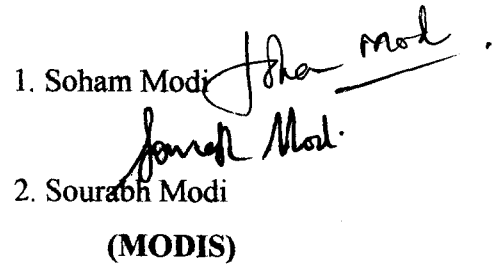 1. Soham Modi Soham Modi.
Sourabh Modi.
2. Sourabh Modi
(MODIS)